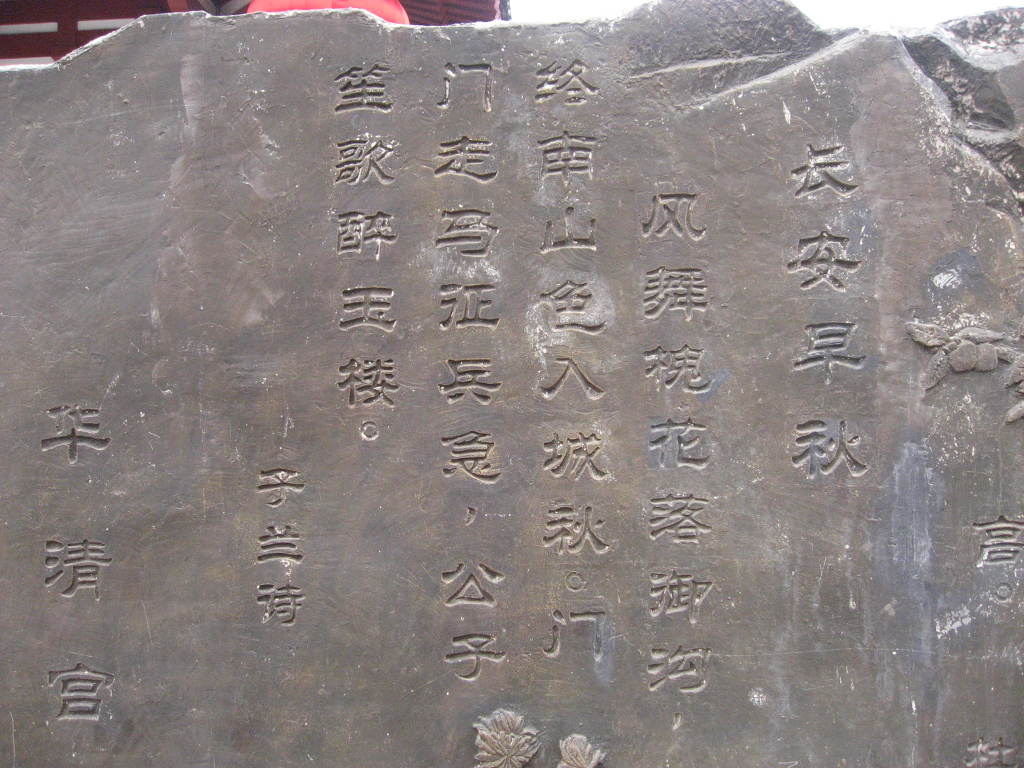 高。
杜
长安早秋
风舞槐花落御沟,
终南山色入城秋。门
门走马征兵急,公子
笙歌醉玉楼。
子兰诗
华清宫